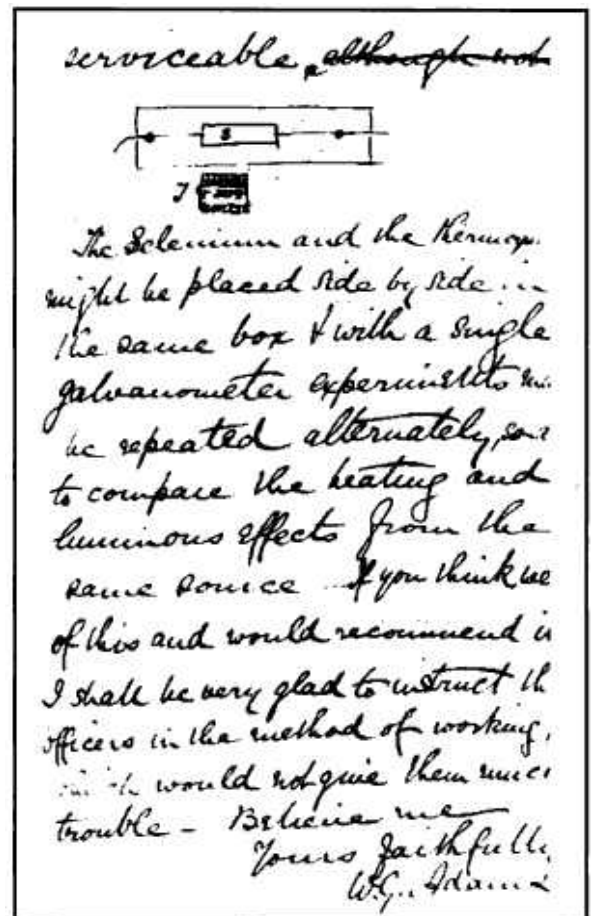 serviceable, although not
S
T
The Selenium and the thermop.
might be placed side by side in
the same box & with a single
galvanometer experiments m
be repeated alternately, so a
to compare the heating and
luminous effects from the
same source If you think we
of this and would recommend i
I shall be very glad to instruct th
officers in the method of working,
would not give them muc
trouble - Believe me
Yours faithfully
W.G. Adams